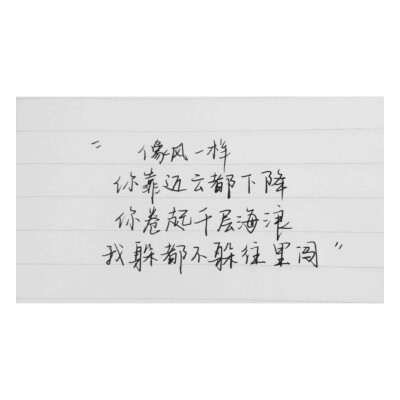 “像风一样
你靠近云都下降
你卷起千层海浪
我躲都不躲往里闯”